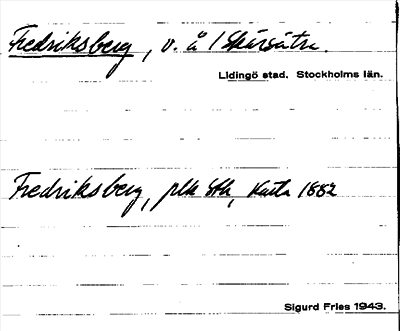 Fredriksberg, v. å 1 Skärsätra.
Lidingö stad. Stockholms län.
Fredriksberg, plk Sth, Karta 1882
Sigurd Fries 1943.